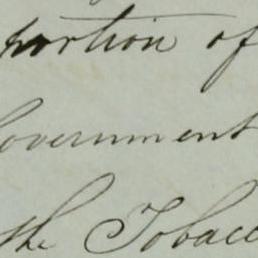 portion of
Government
the Tobacc